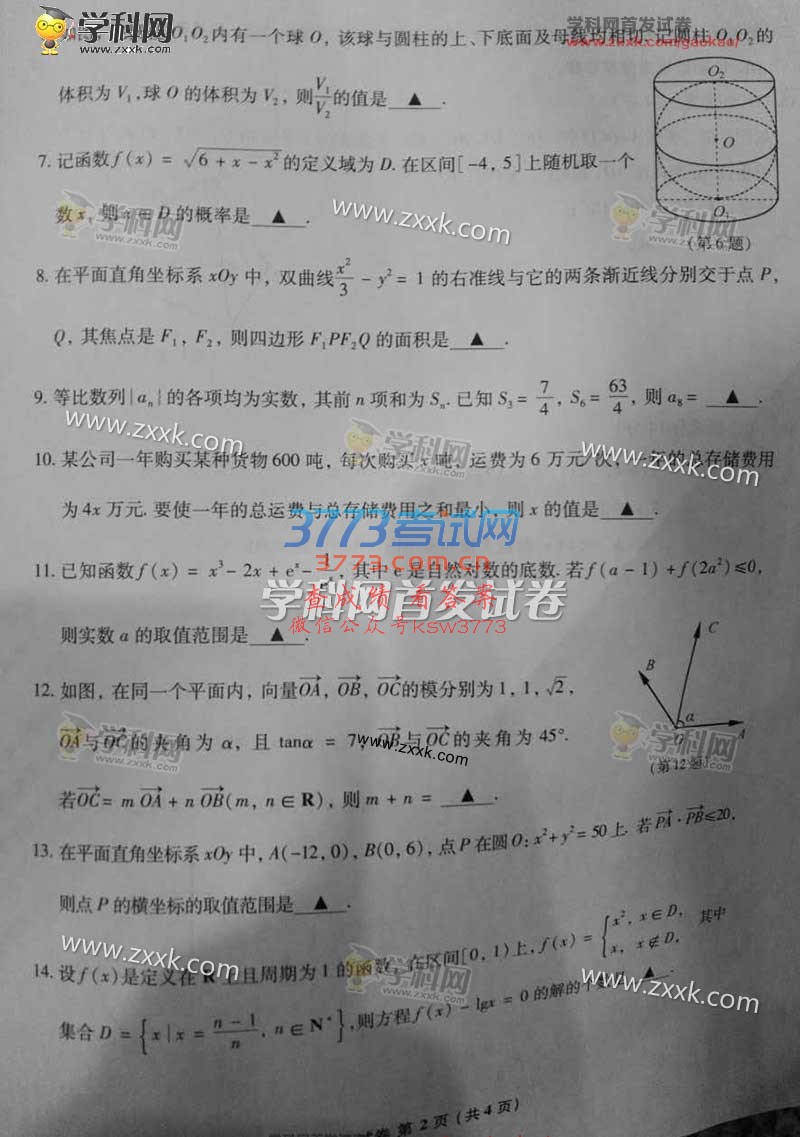 学科网
www.zxxk.com
学科网首发试卷
www.zxxk.com/gaokao/
O₁O₂内有一个球 O，该球与圆柱的上、下底面及母线均相切. 记圆柱 O₁O₂的
体积为 V₁,球 O 的体积为 V₂，则 V₁/V₂ 的值是 ▲ .
O₂
O
O₁
(第6题)
7. 记函数 f(x) = √(6 + x - x²) 的定义域为 D. 在区间[-4, 5]上随机取一个
数 x，则 x ∈ D 的概率是 ▲ .
学科网
www.zxxk.com
www.zxxk.com
学科网
www.zxxk.com
8. 在平面直角坐标系 xOy 中，双曲线 x²/3 - y² = 1 的右准线与它的两条渐近线分别交于点 P,
Q，其焦点是 F₁，F₂，则四边形 F₁PF₂Q 的面积是 ▲ .
9. 等比数列{aₙ}的各项均为实数，其前 n 项和为 Sₙ. 已知 S₃ = 7/4，S₆ = 63/4，则 a₈ = ▲ .
www.zxxk.com
学科网
www.zxxk.com
www.zxxk.com
10. 某公司一年购买某种货物 600 吨，每次购买 x 吨，运费为 6 万元/次，一年的总存储费用
为 4x 万元. 要使一年的总运费与总存储费用之和最小，则 x 的值是 ▲ .
3773考试网
3773.com.cn
11. 已知函数 f(x) = x³ - 2x + eˣ - 1/eˣ，其中 e 是自然对数的底数. 若 f(a - 1) + f(2a²) ≤ 0,
学科网首发试卷
查成绩 看答案
微信公众号ksw3773
则实数 a 的取值范围是 ▲ .
12. 如图，在同一个平面内，向量OA→，OB→，OC→的模分别为 1, 1, √2，
OA→与OC→的夹角为 α，且 tanα = 7，OB→与OC→的夹角为 45°.
若OC→ = m OA→ + n OB→ (m, n ∈ R)，则 m + n = ▲ .
C
B
α
O
A
(第12题)
学科网
www.zxxk.com
www.zxxk.com
学科网
www.zxxk.com
13. 在平面直角坐标系 xOy 中，A(-12, 0)，B(0, 6)，点 P 在圆 O: x² + y² = 50 上. 若PA→·PB→ ≤ 20,
则点 P 的横坐标的取值范围是 ▲ .
14. 设 f(x)是定义在 R 上且周期为 1 的函数，在区间[0, 1)上，f(x) = { x², x ∈ D, x, x ∉ D, 其中
集合 D = {x | x = (n - 1)/n, n ∈ N*}，则方程 f(x) - lgx = 0 的解的个数是 ▲ .
www.zxxk.com
学科网
www.zxxk.com
www.zxxk.com
试卷 第 2 页 (共 4 页)